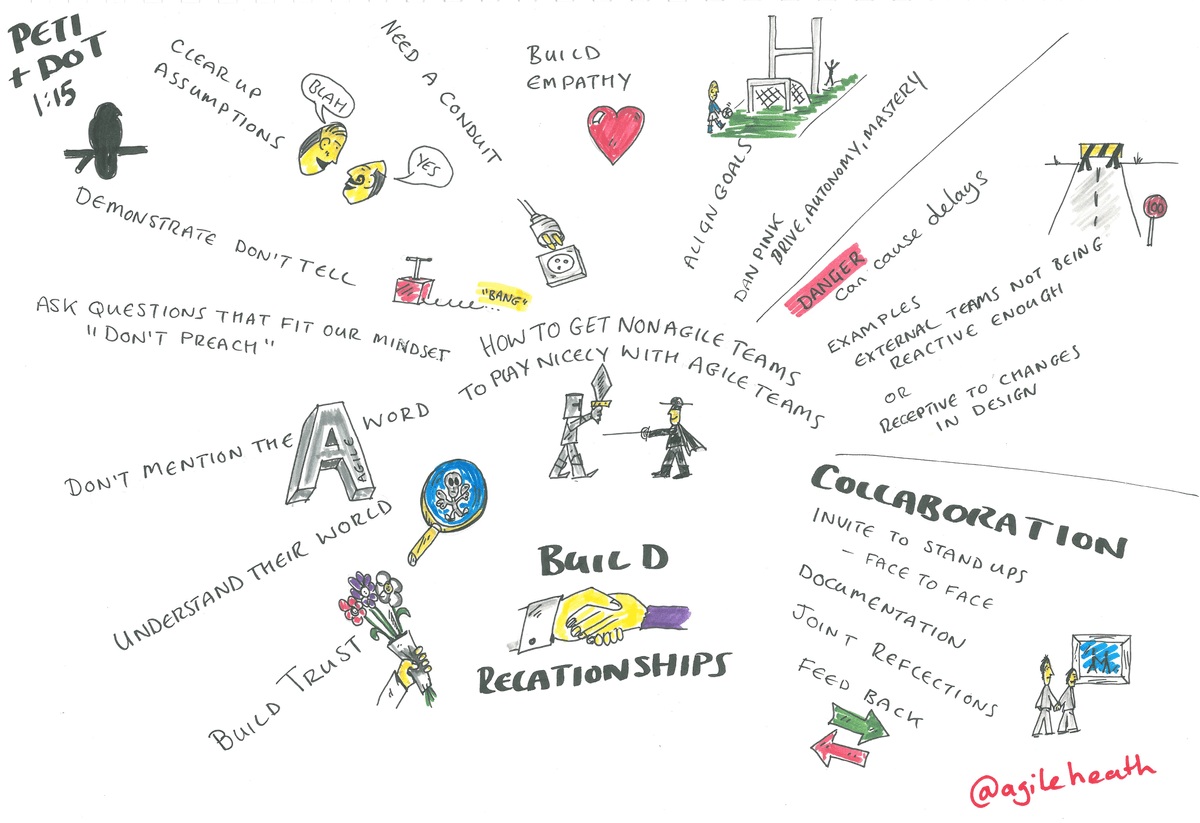 PETI
+ DOT
1:15
CLEAR UP
ASSUMPTIONS
BLAH
YES
NEED A CONDUIT
BUILD
EMPATHY
ALIGN GOALS
DAN PINK
DRIVE, AUTONOMY, MASTERY
DANGER
can cause delays
100
EXAMPLES
EXTERNAL TEAMS NOT BEING
REACTIVE ENOUGH
OR
RECEPTIVE TO CHANGES
IN DESIGN
DEMONSTRATE DON'T TELL
"BANG"
ASK QUESTIONS THAT FIT OUR MINDSET
"DON'T PREACH"
HOW TO GET NON AGILE TEAMS
TO PLAY NICELY WITH AGILE TEAMS
DON'T MENTION THE A WORD
AGILE
UNDERSTAND THEIR WORLD
BUILD TRUST
BUILD
RELATIONSHIPS
COLLABORATION
INVITE TO STAND UPS
- FACE TO FACE
DOCUMENTATION
JOINT REFLECTIONS
FEED BACK
@agileheath